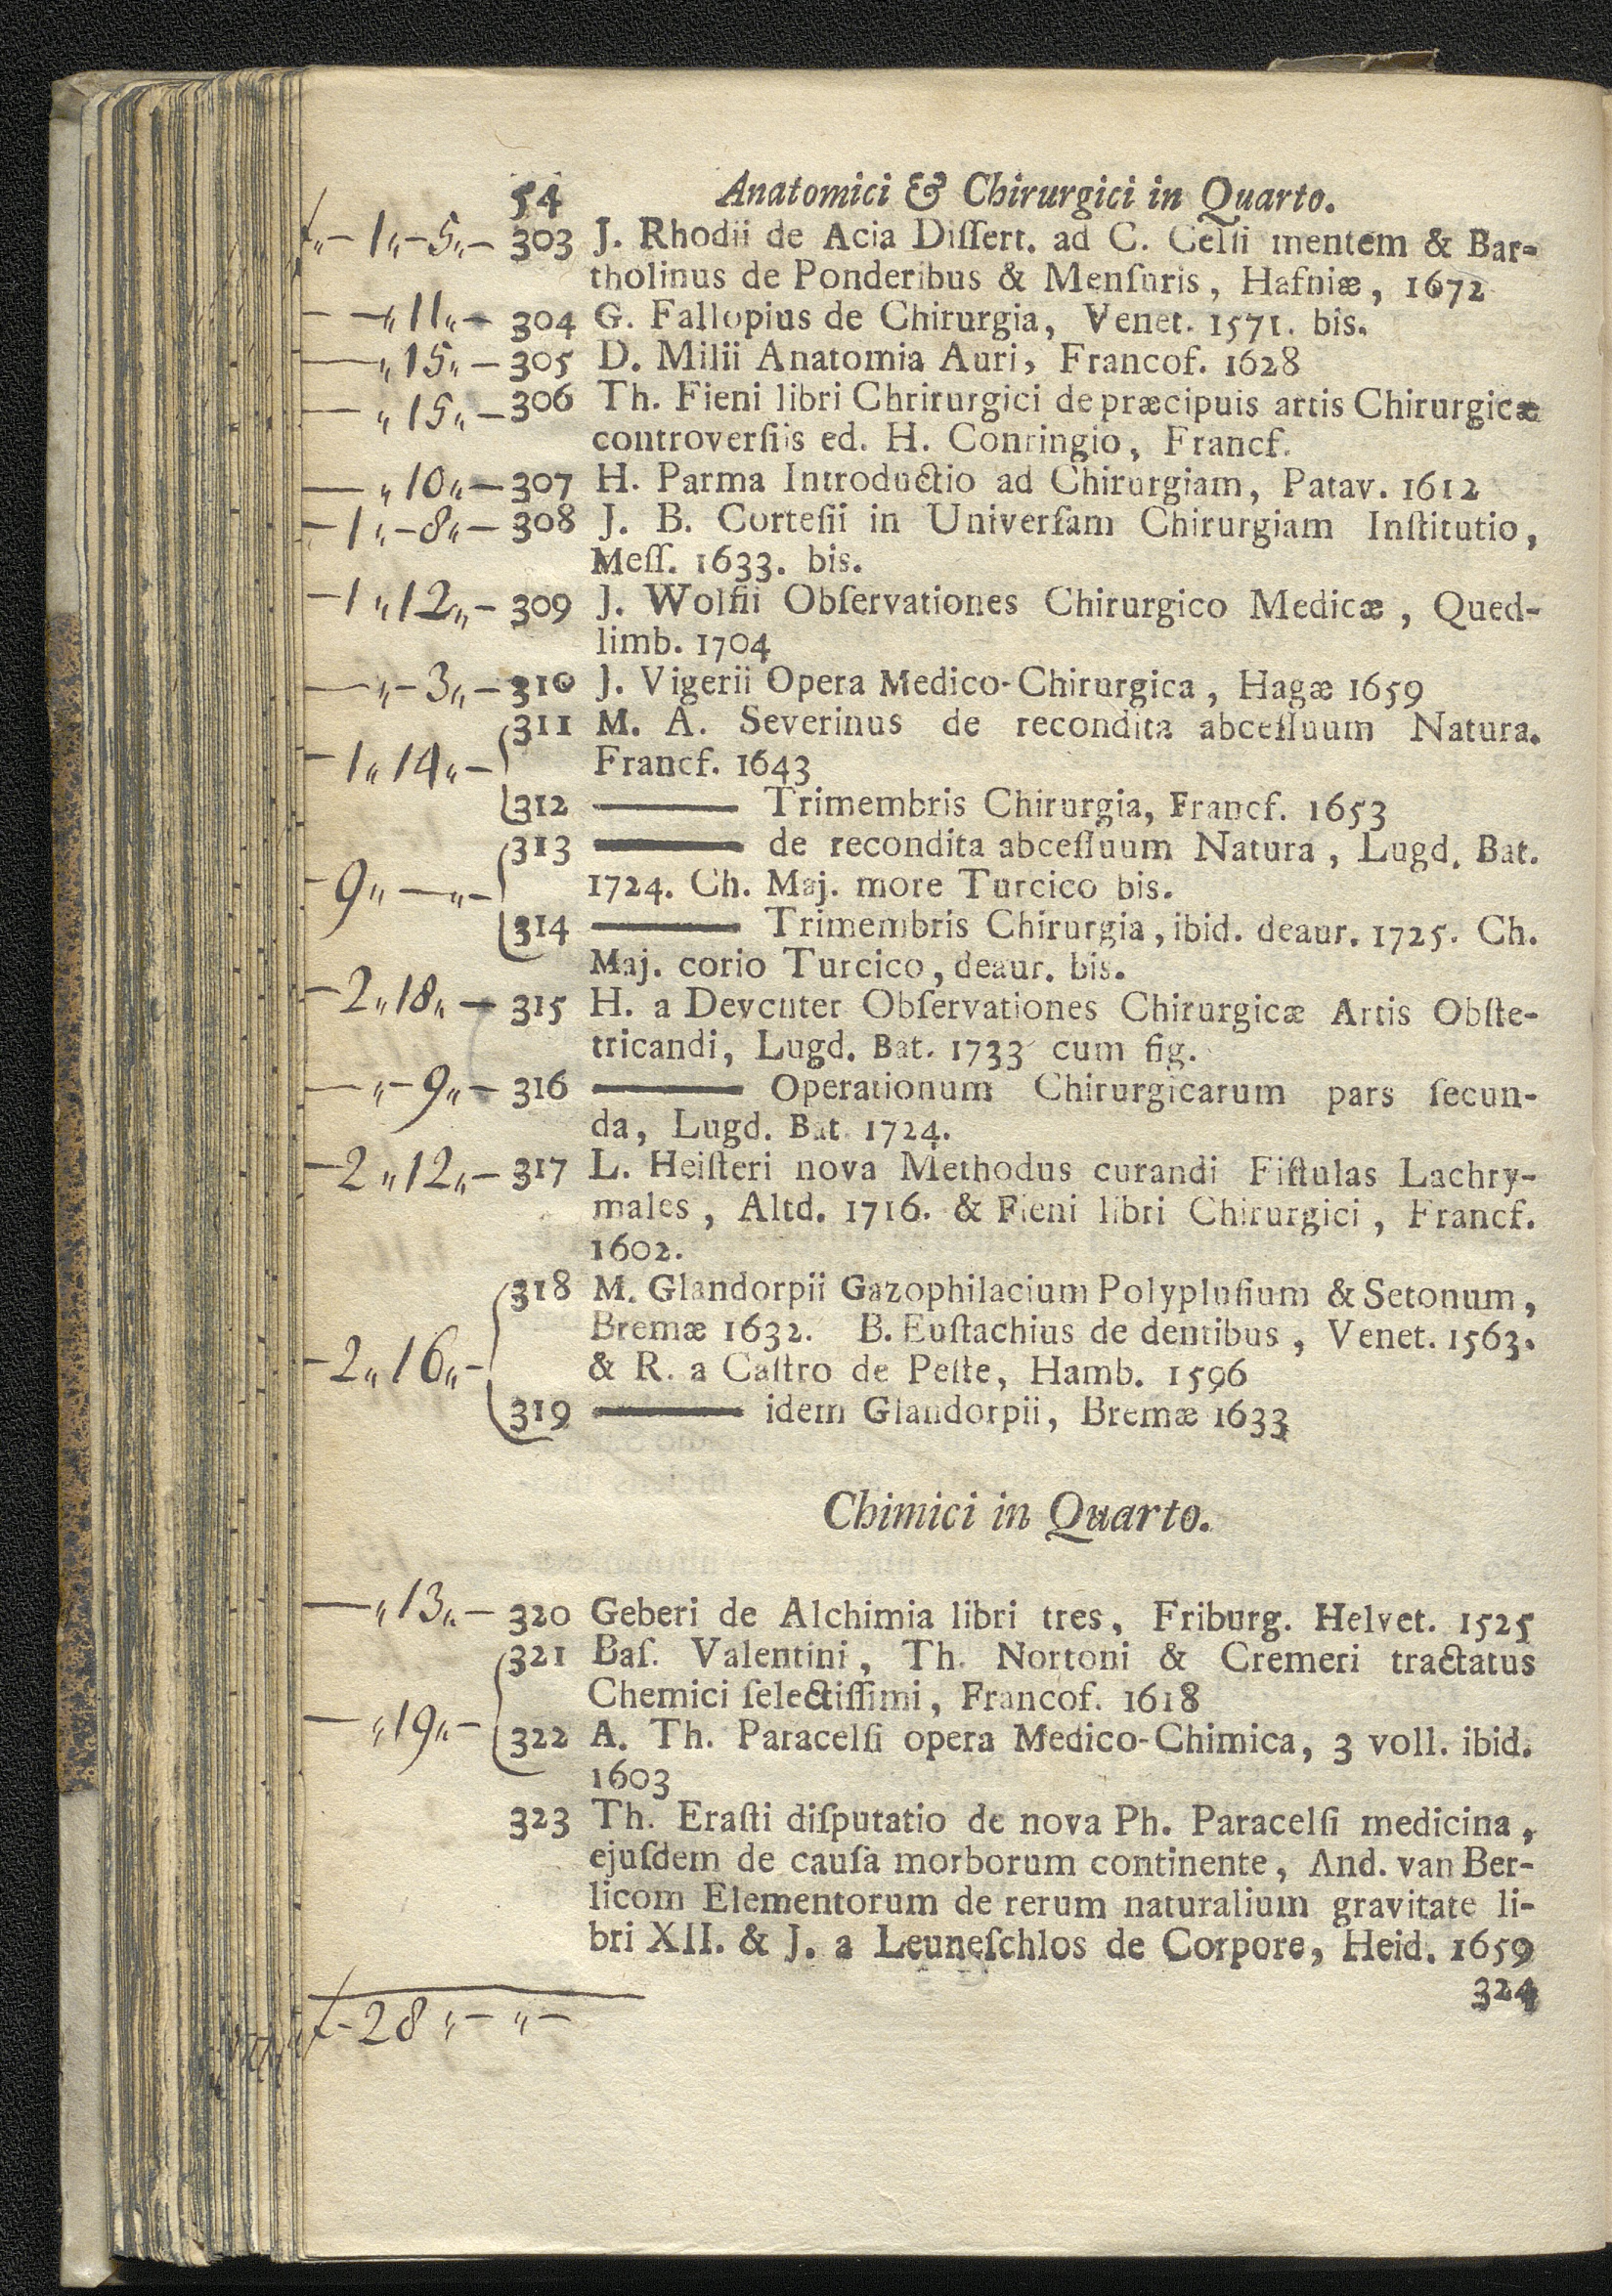 54 Anatomici & Chirurgici in Quarto.
f„-1„-5„- 303 J. Rhodii de Acia Diſſert. ad C. Celſi mentem & Bar-
tholinus de Ponderibus & Menſuris, Hafniæ, 1672
- -„11„- 304 G. Fallopius de Chirurgia, Venet. 1571. bis.
-„15„- 305 D. Milii Anatomia Auri, Francof. 1628
-„15„- 306 Th. Fieni libri Chrirurgici de præcipuis artis Chirurgicæ
controverſiis ed. H. Conringio, Francf.
-„10„- 307 H. Parma Introductio ad Chirurgiam, Patav. 1612
-1„-8„- 308 J. B. Corteſii in Univerſam Chirurgiam Inſtitutio,
Meſſ. 1633. bis.
-1„12„- 309 J. Wolfii Obſervationes Chirurgico Medicæ, Qued-
limb. 1704
-„-3„- 310 J. Vigerii Opera Medico-Chirurgica, Hagæ 1659
311 M. A. Severinus de recondita abceſſuum Natura.
-1„14„- Francf. 1643
312 —— Trimembris Chirurgia, Francf. 1653
313 —— de recondita abceſſuum Natura, Lugd. Bat.
-9„-„- 1724. Ch. Maj. more Turcico bis.
314 —— Trimembris Chirurgia, ibid. deaur. 1725. Ch.
Maj. corio Turcico, deaur. bis.
-2„18„- 315 H. a Deventer Obſervationes Chirurgicæ Artis Obſte-
tricandi, Lugd. Bat. 1733 cum fig.
-„-9„- 316 —— Operationum Chirurgicarum pars ſecun-
da, Lugd. Bat. 1724.
-2„12„- 317 L. Heiſteri nova Methodus curandi Fiſtulas Lachry-
males, Altd. 1716. & Fieni libri Chirurgici, Francf.
1602.
318 M. Glandorpii Gazophilacium Polypluſium & Setonum,
Bremæ 1632. B. Euſtachius de dentibus, Venet. 1563.
-2„16„- & R. a Caſtro de Peſte, Hamb. 1596
319 —— idem Glandorpii, Bremæ 1633
Chimici in Quarto.
-„13„- 320 Geberi de Alchimia libri tres, Friburg. Helvet. 1525
321 Baſ. Valentini, Th. Nortoni & Cremeri tractatus
Chemici ſelectiſſimi, Francof. 1618
-„19„- 322 A. Th. Paracelſi opera Medico-Chimica, 3 voll. ibid.
1603
323 Th. Eraſti diſputatio de nova Ph. Paracelſi medicina,
ejuſdem de cauſa morborum continente, And. van Ber-
licom Elementorum de rerum naturalium gravitate li-
bri XII. & J. a Leuneſchlos de Corpore, Heid. 1659
324
f-28„-„-